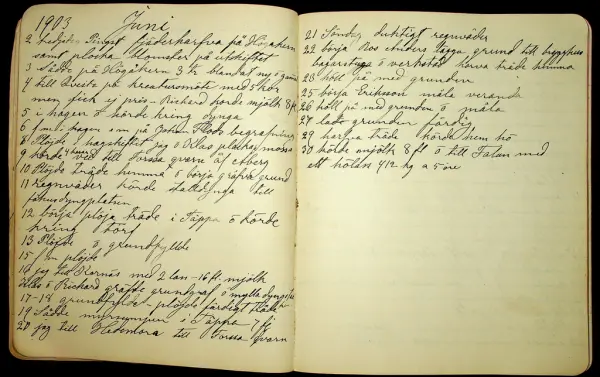 1903 Juni
2 tredjedag Pingst fjäderharfva på Högåkern
samt plocka blomster på utskiftet
3 Sådde på Högåkern 3 tr blandat ny o gam
4 till Sveden på kreatursmöte med 3 kor
men fick ej pris Richard körde mjölk 8 ft
5 i hagen o körde kring dynga
6 f.m. i hagen e m på Johan begrafning
8 Plöjde hagskiftet jag o Klas plocka mossa
9 körde ved till Forssa qvarn
10 Plöjde träde hemma o börja gräfva grund
11 Regnväder körde stalldynga till
dyngplatsen
12 börja plöja träde i Täppa o körde
kring torf
13 Plöjde o grundfyllde
15 f m plöjde
16 jag till Kornäs med 2 lan - 16 ft. mjölk
o Richard gräfde grundgraf o mylla dynga
17-18 grundfyllde - plöjde färdigt träde
19 Sådde i Täppa
20 jag till Hedemora till Forssa qvarn
21 Söndag duktigt regnväder
22 börja Ros Anders lägga grund till
bagarstuga o verkstad harva träde hemma
23 höll på med grunden
25 börja Erikson måla veranda
26 höll på med grunden o måla
27 lades grunden färdig
29 harfva träde körde hem hö
30 körde mjölk 8 ft o till Falan med
ett hölass 412 kg a 5 öre